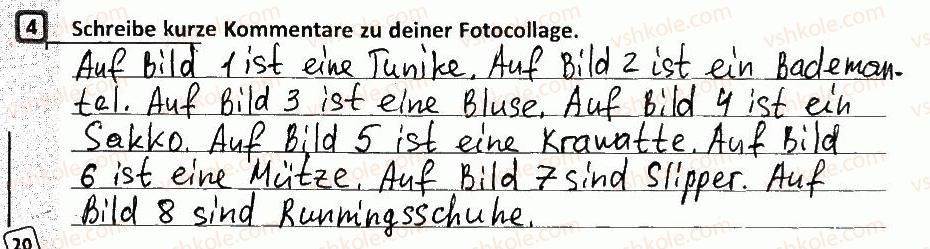 4 Schreibe kurze Kommentare zu deiner Fotocollage.
Auf Bild 1 ist eine Tunike. Auf Bild 2 ist ein Bademan-
tel. Auf Bild 3 ist eine Bluse. Auf Bild 4 ist ein
Sakko. Auf Bild 5 ist eine Krawatte. Auf Bild
6 ist eine Mütze. Auf Bild 7 sind Slipper. Auf
Bild 8 sind Runningsschuhe.
20